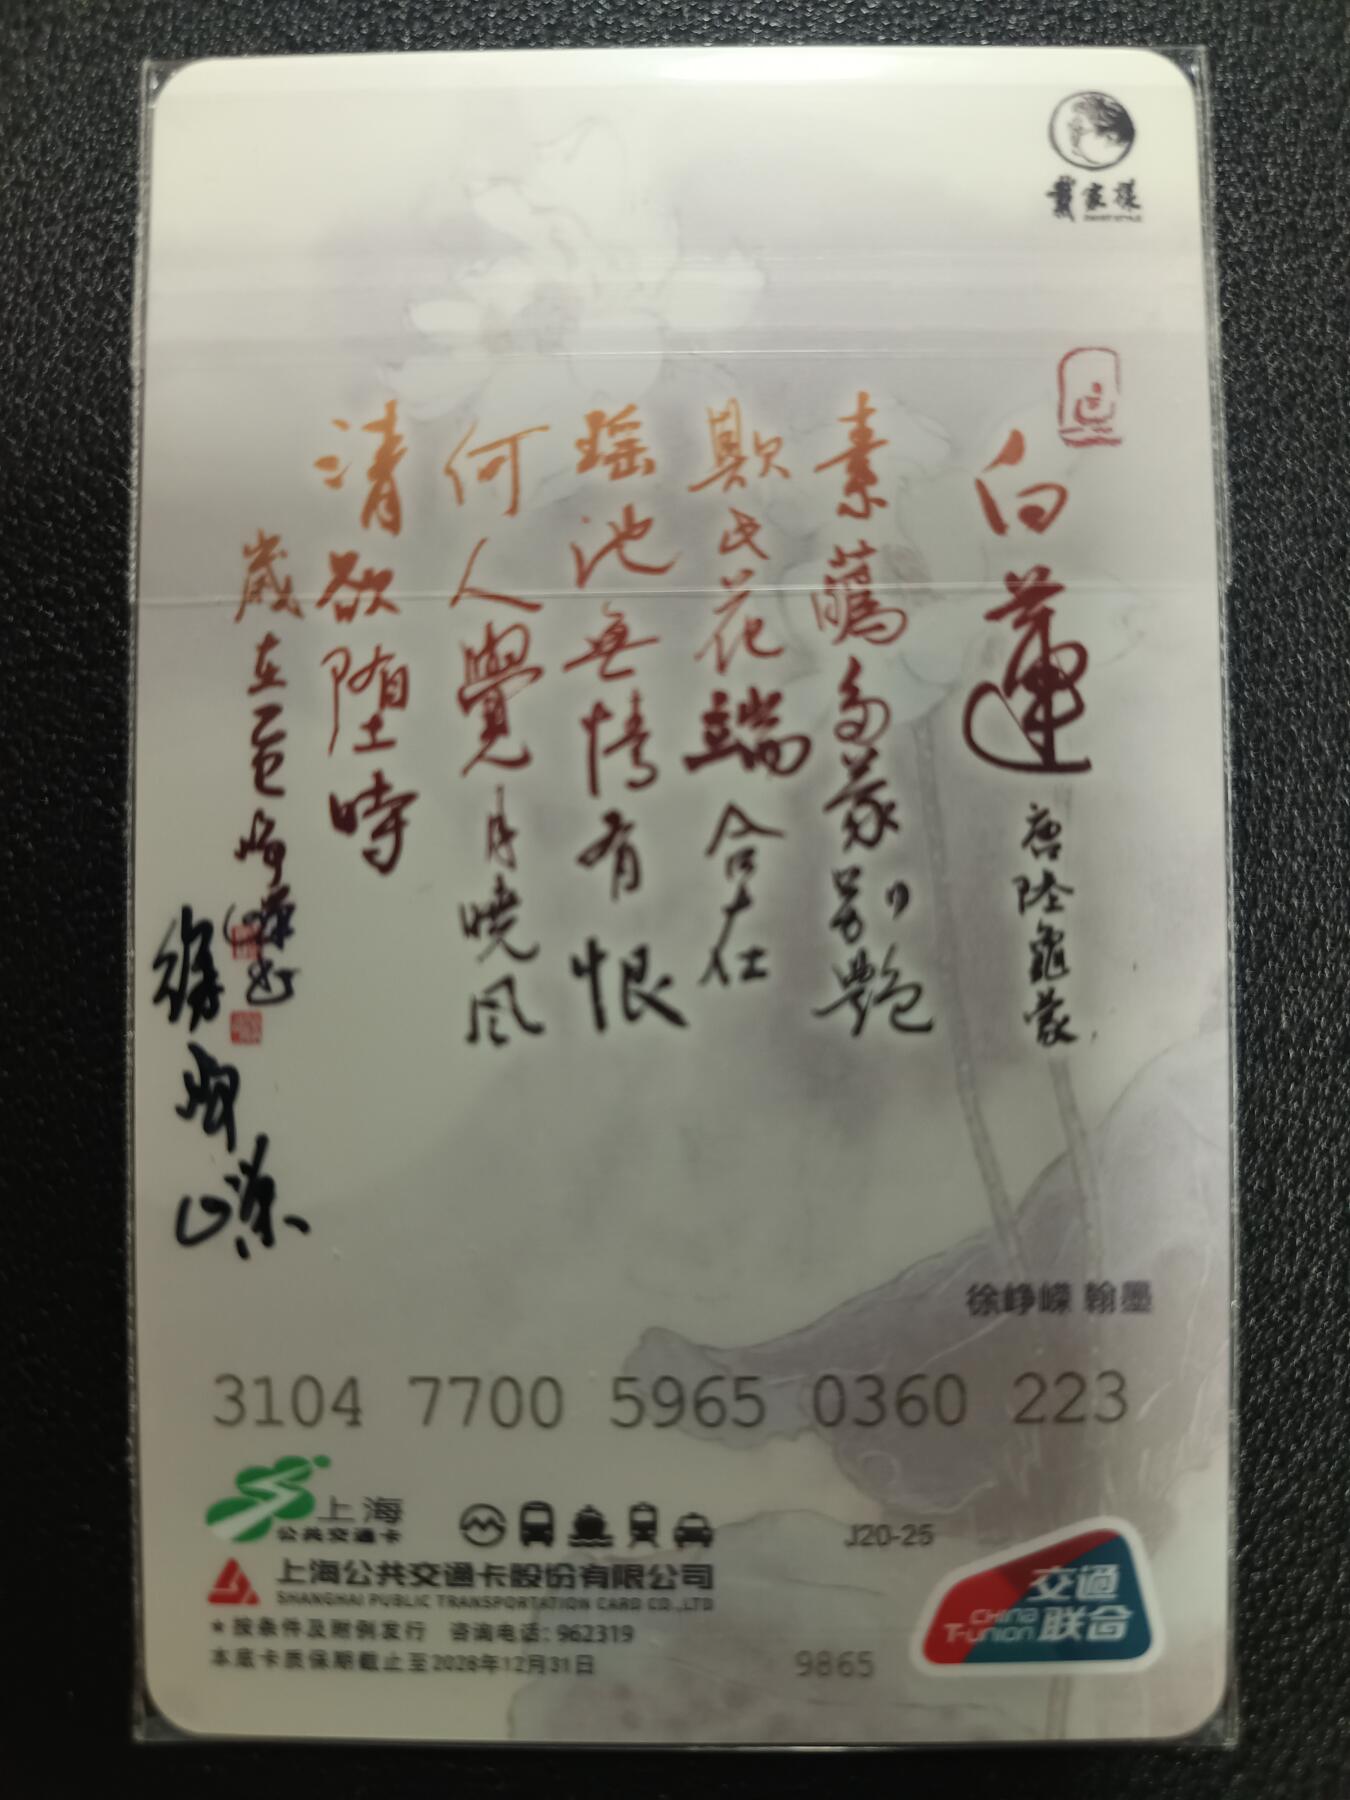 戴家樣
白蓮 唐陸龜蒙
素蘤多蒙别艷
欺此花端合在
瑶池無情有恨
何人覺月曉風
清欲堕時
歲在乙巳崢嶸書
徐峥嵘
徐峥嵘 翰墨
3104 7700 5965 0360 223
上海
公共交通卡
J20-25
上海公共交通卡股份有限公司
SHANGHAI PUBLIC TRANSPORTATION CARD CO.,LTD
★按条件及附例发行 咨询电话:962319
本底卡质保期截止至2028年12月31日
9865
交通
联合
China
T-union